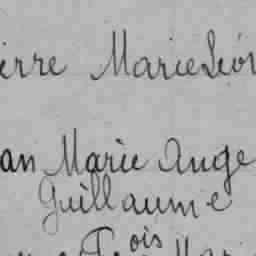 erre Marie Léon
an Marie Ange
Guillaume
ois